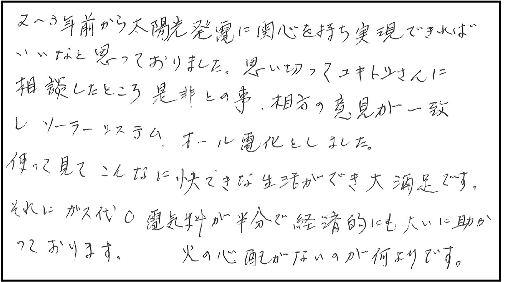 2〜3年前から太陽光発電に関心を持ち実現できれば
いいなと思っておりました。思い切ってユキトリさんに
相談したところ是非との事、相方の意見が一致
し ソーラーシステム、オール電化としました。
使って見てこんなに快てきな生活ができ大満足です。
それにガス代0電気料が半分で経済的にも大いに助か
っております。 火の心配がないのが何よりです。